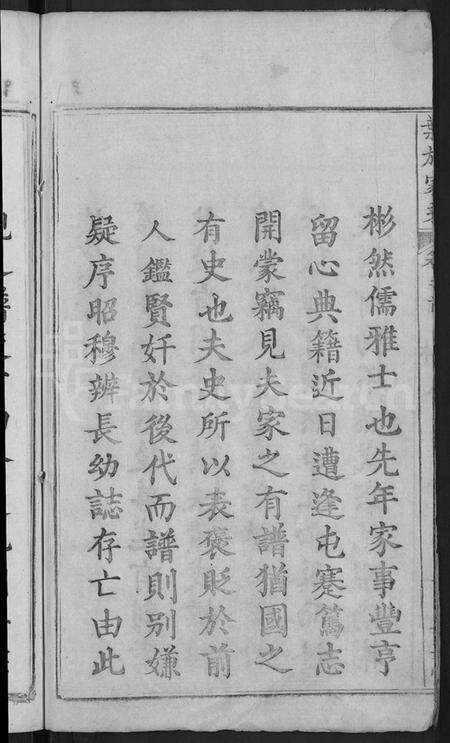 彬然儒雅士也先年家事豐亨
留心典籍近日遭逢屯蹇篤志
開蒙竊見夫家之有譜猶國之
有史也夫史所以表褒貶於前
人鑑賢奸於後代而譜則别嫌
疑序昭穆辨長幼誌存亡由此